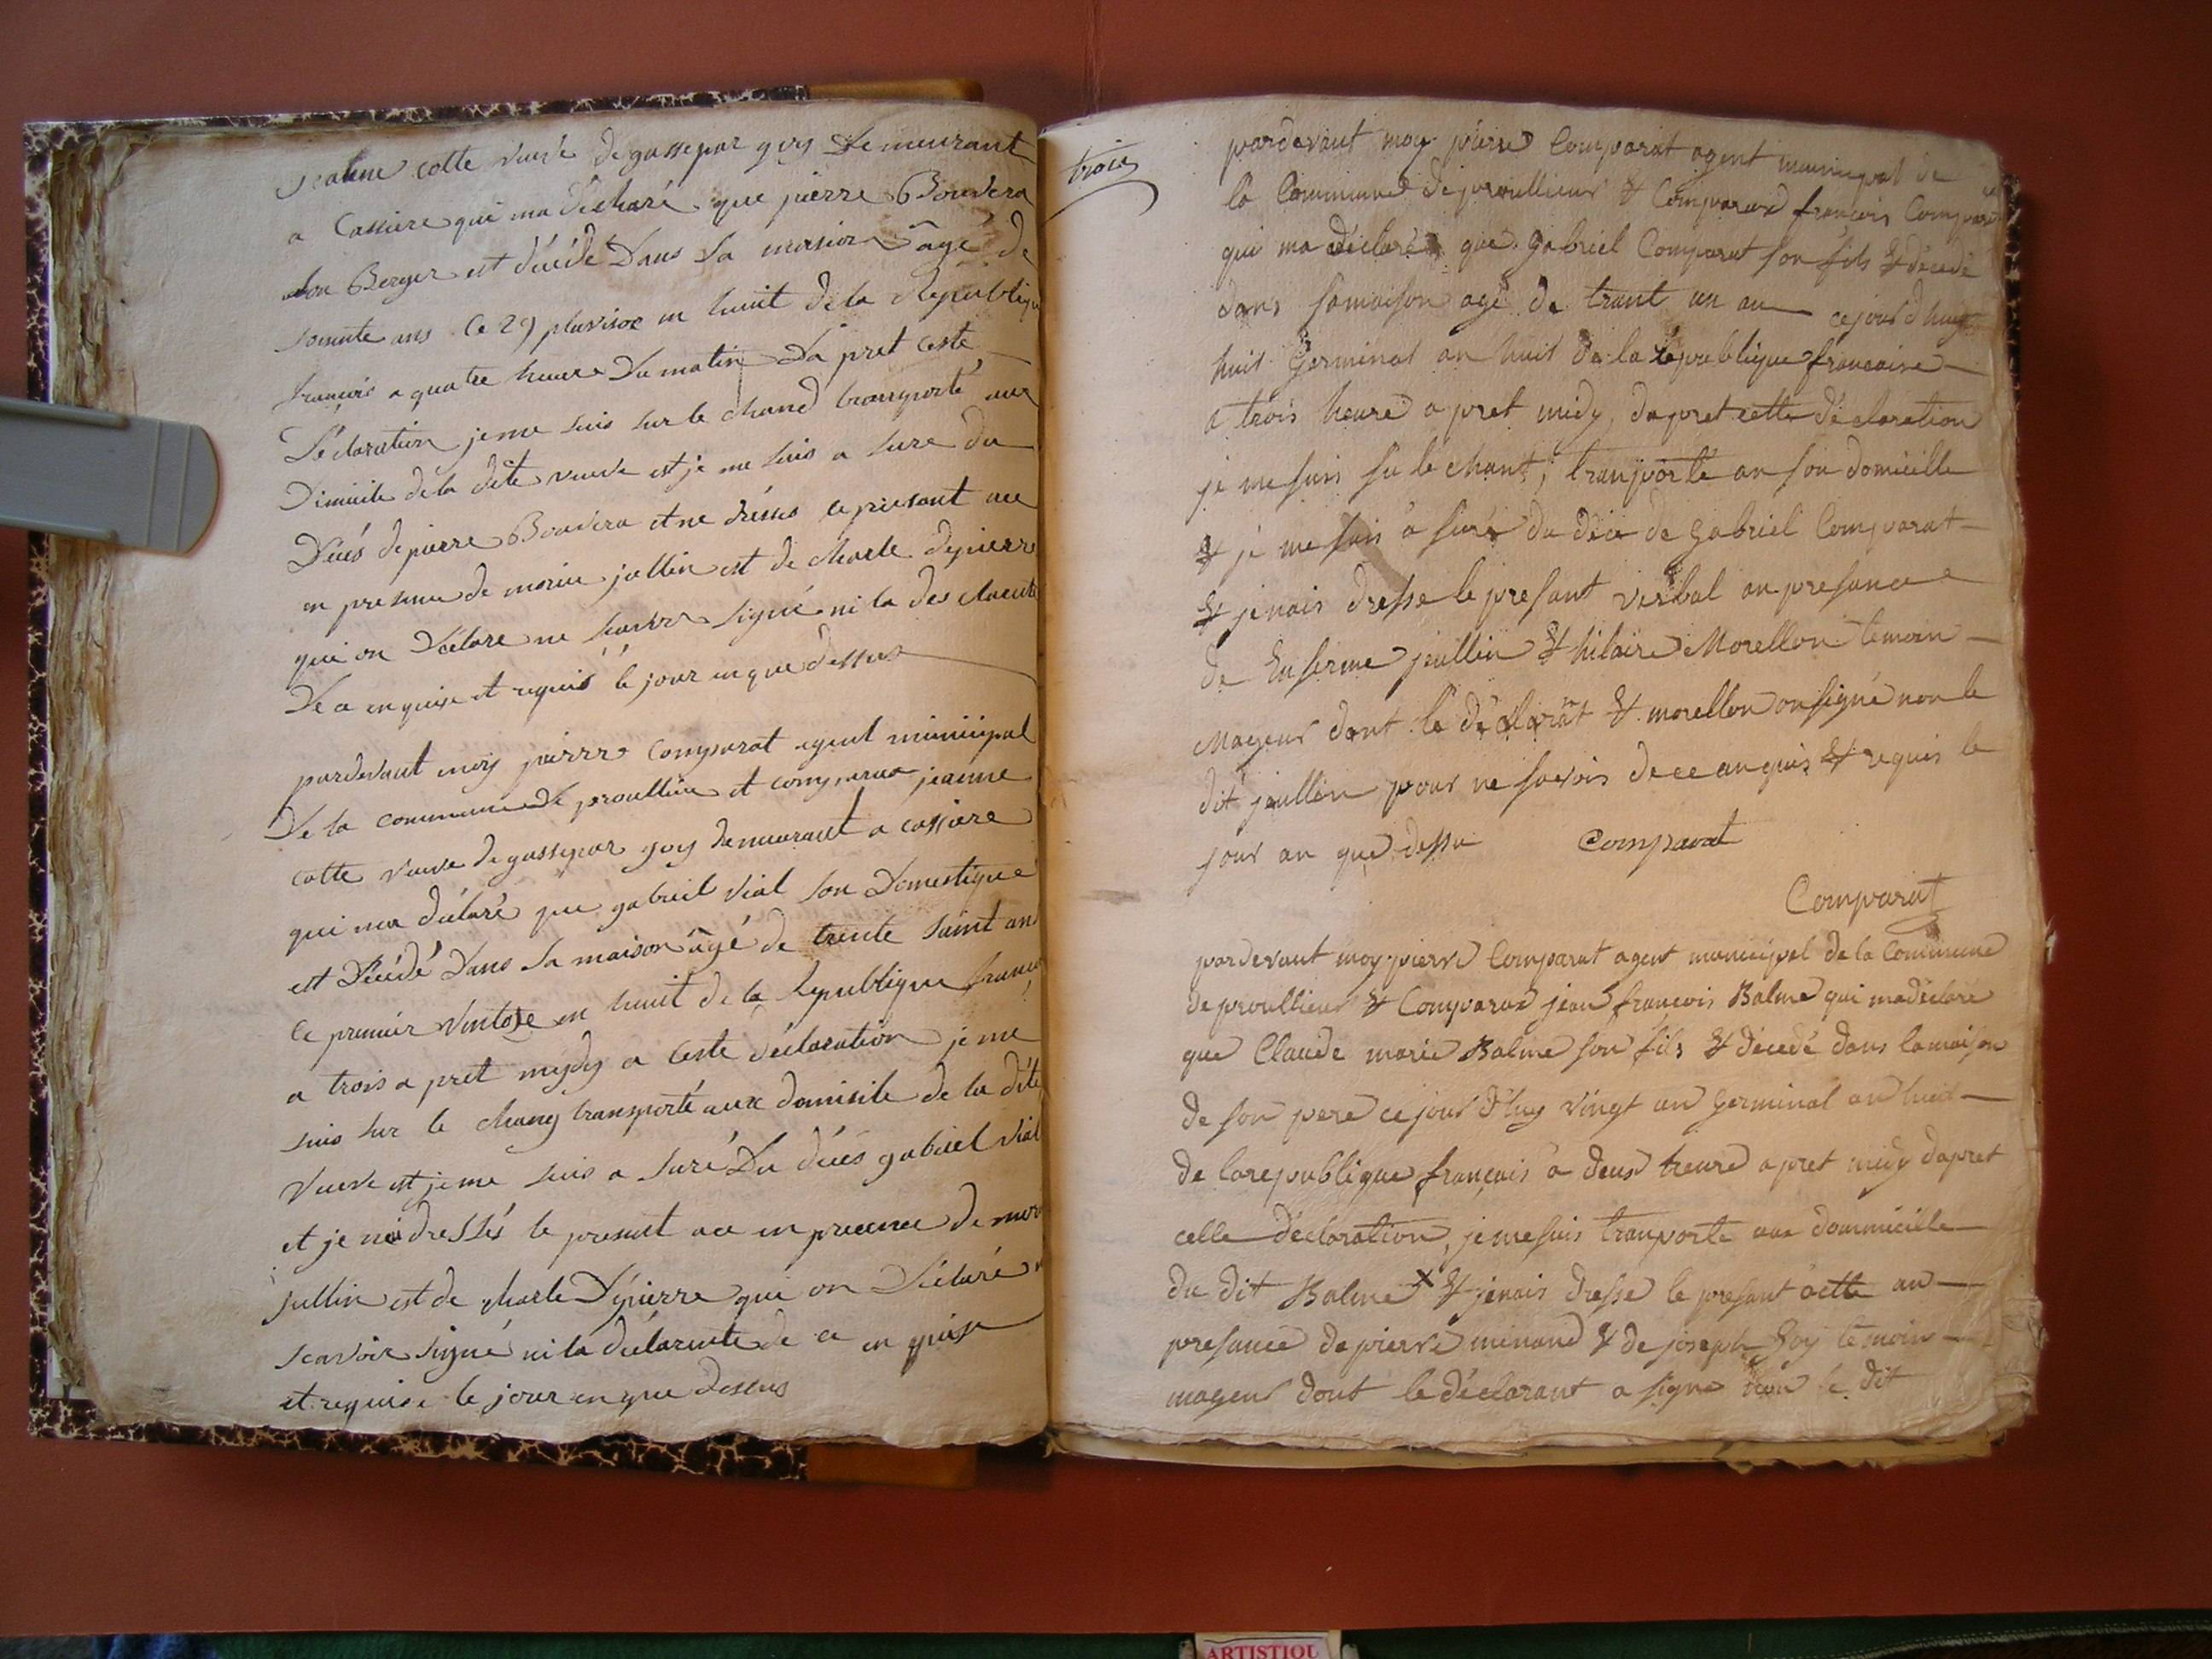 jeanne cotte veuve de gassepar goy Demeurant
a Cassiere qui ma décharé que pierre Bouvera
son Berger est décédé Dans Sa maison âgé de
soixante ans Ce 29 pluvisoe en huit de la Republique
français a quatre heure Du matin Da pret Ceste
Déclaration je me suis sur le chand transporté aux
Dimicile de la dite veuve est je me suis a sure du
Déces de pierre Bouvera et ne dresses le presant ace
en presence de morice jullin est de charle depierre
qui on Déclare ne scavoir signé ni la des claente
De ce enquise et requis le jour en que dessus
pardevant moy pierre Comparat agent municipal
De la commune de proullieu et comparux jeanne
cotte veuve de gassepar goy demeurant a cassiere
qui ma déclaré que gabriel vial son Domestique
est Décédé Dans Sa maison âgé de trente saint ans
Ce premier Ventose en huit de la Republique francai
a trois a pret mydy a Ceste déclaration je me
suis sur le chang transporté aux domisile de la dite
veuve est je me suis a suré Du déces gabriel vial
et je né dressés le presant ace en presence de mor
jullin est de charle Depierre qui on Déclaré n
scavoir signé ni la déclarente de ce en quise
et requise le jour en que dessus
trois
pardevant moy pierre Comparat agent municipal de
la Commune de proullieux & Comparux françois Comparat
qui ma déclaré que gabriel Comparat son fils & décedé
dans samaison agé de trant un an cejourd'huy
huit Germinal an huit de la republique francaise
a trois heure a pret midy, dapret cette déclaration
je me suis su le chant, tranporté an son domicille
& je me suis a suré du déce de gabriel Comparat
& jenais dresse le presant verbal an presance
de Enserme jeullin & hilaire Morellon temoin
Mageur dont le déclarant & morellon on signé non le
dit jeullin pour ne savois de ce anquis & requis le
jour an que dessu Comparat
Comparat
pardevant moy pierre Comparat agent municipal de la Commune
de proullieux & Comparux jean francois Balme qui madéclaré
que Claude marie Balme son fils & décedé dans lamaison
de son pere cejourd'huy vingt un Germinal an huit
de larepublique français a deux heure a pret midy dapret
celle déclaration, jemesuis tranporte aux dommicille
du dit Balme x & jenais dresse le presant actte an
presance de pierre minand & de joseph Goy temoin
mageur dont le déclarant a signe non le dit
ARTISTIQU